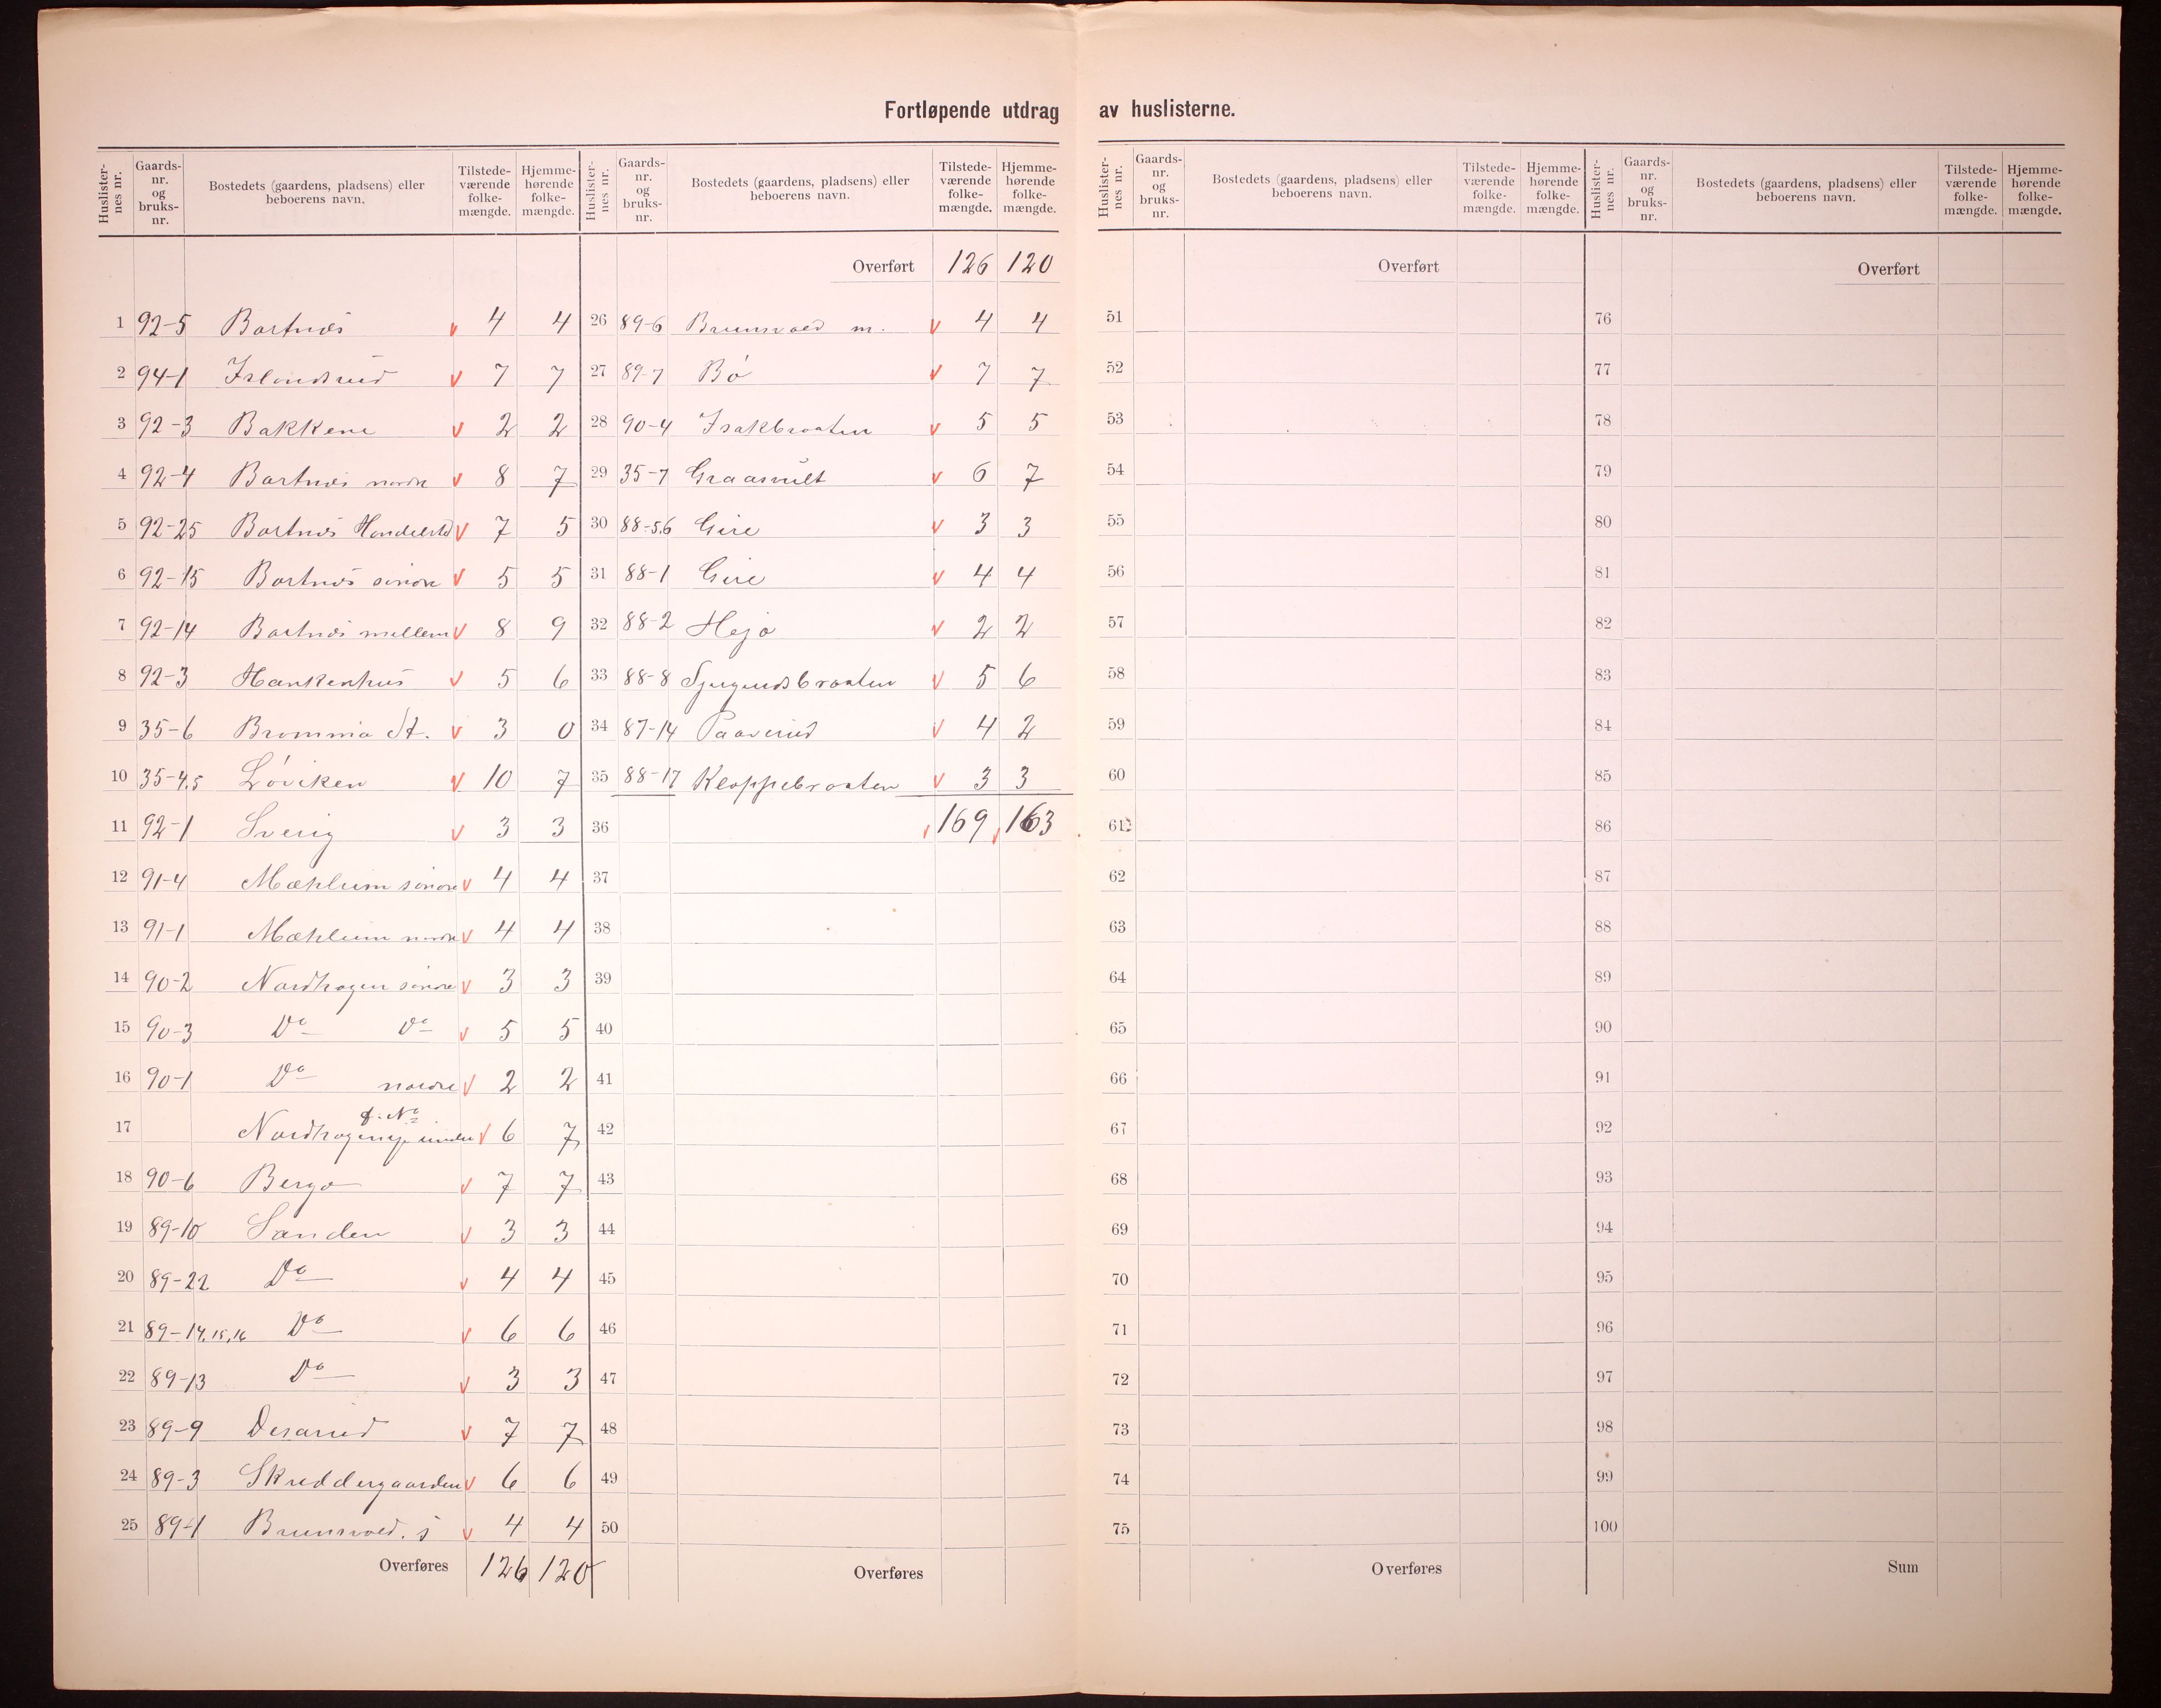 Fortløpende utdrag av huslisterne.
Huslister-nes nr. Gaards-nr. og bruks-nr. Bostedets (gaardens, pladsens) eller beboerens navn. Tilstede-værende folke-mængde. Hjemme-hørende folke-mængde.
1 92-5 Bortnæs v 4 4
2 94-1 v 7 7
3 92-3 Bakkene v 2 2
4 92-4 Bortnæs nordre v 8 7
5 92-25 Bortnæs v 7 5
6 92-15 Bortnæs søndre v 5 5
7 92-14 Bortnæs mellem v 8 9
8 92-3 Haukenhus v 5 6
9 35-6 Bromma St. v 3 0
10 35-4,5 Løviken v 10 7
11 92-1 Sverig v 3 3
12 91-4 Mæhlum søndre v 4 4
13 91-1 Mæhlum nordre v 4 4
14 90-2 Nordhagen søndre v 3 3
15 90-3 Do Do v 5 5
16 90-1 Do nordre v 2 2
17 v 6 7
18 90-6 Berga v 7 7
19 89-10 Sanden v 3 3
20 89-22 Do v 4 4
21 89-14,15,16 Do v 6 6
22 89-13 Do v 3 3
23 89-9 Desarud v 7 7
24 89-3 Skreddergaarden v 6 6
25 89-1 Brunsvold. s v 4 4
Overføres 126 120
Huslister-nes nr. Gaards-nr. og bruks-nr. Bostedets (gaardens, pladsens) eller beboerens navn. Tilstede-værende folke-mængde. Hjemme-hørende folke-mængde.
Overført 126 120
26 89-6 Brunsvold m. v 4 4
27 89-7 Bø v 7 7
28 90-4 Isakbraaten v 5 5
29 35-7 Graasult v 6 7
30 88-5,6 Gire v 3 3
31 88-1 Gire v 4 4
32 88-2 Heja v 2 2
33 88-8 v 5 6
34 87-14 Paaverud v 4 2
35 88-17 Kloppebraaten v 3 3
36 169 163
37
38
39
40
41
42
43
44
45
46
47
48
49
50
Overføres
Huslister-nes nr. Gaards-nr. og bruks-nr. Bostedets (gaardens, pladsens) eller beboerens navn. Tilstede-værende folke-mængde. Hjemme-hørende folke-mængde.
Overført
51
52
53
54
55
56
57
58
59
60
61
62
63
64
65
66
67
68
69
70
71
72
73
74
75
Overføres
Huslister-nes nr. Gaards-nr. og bruks-nr. Bostedets (gaardens, pladsens) eller beboerens navn. Tilstede-værende folke-mængde. Hjemme-hørende folke-mængde.
Overført
76
77
78
79
80
81
82
83
84
85
86
87
88
89
90
91
92
93
94
95
96
97
98
99
100
Sum